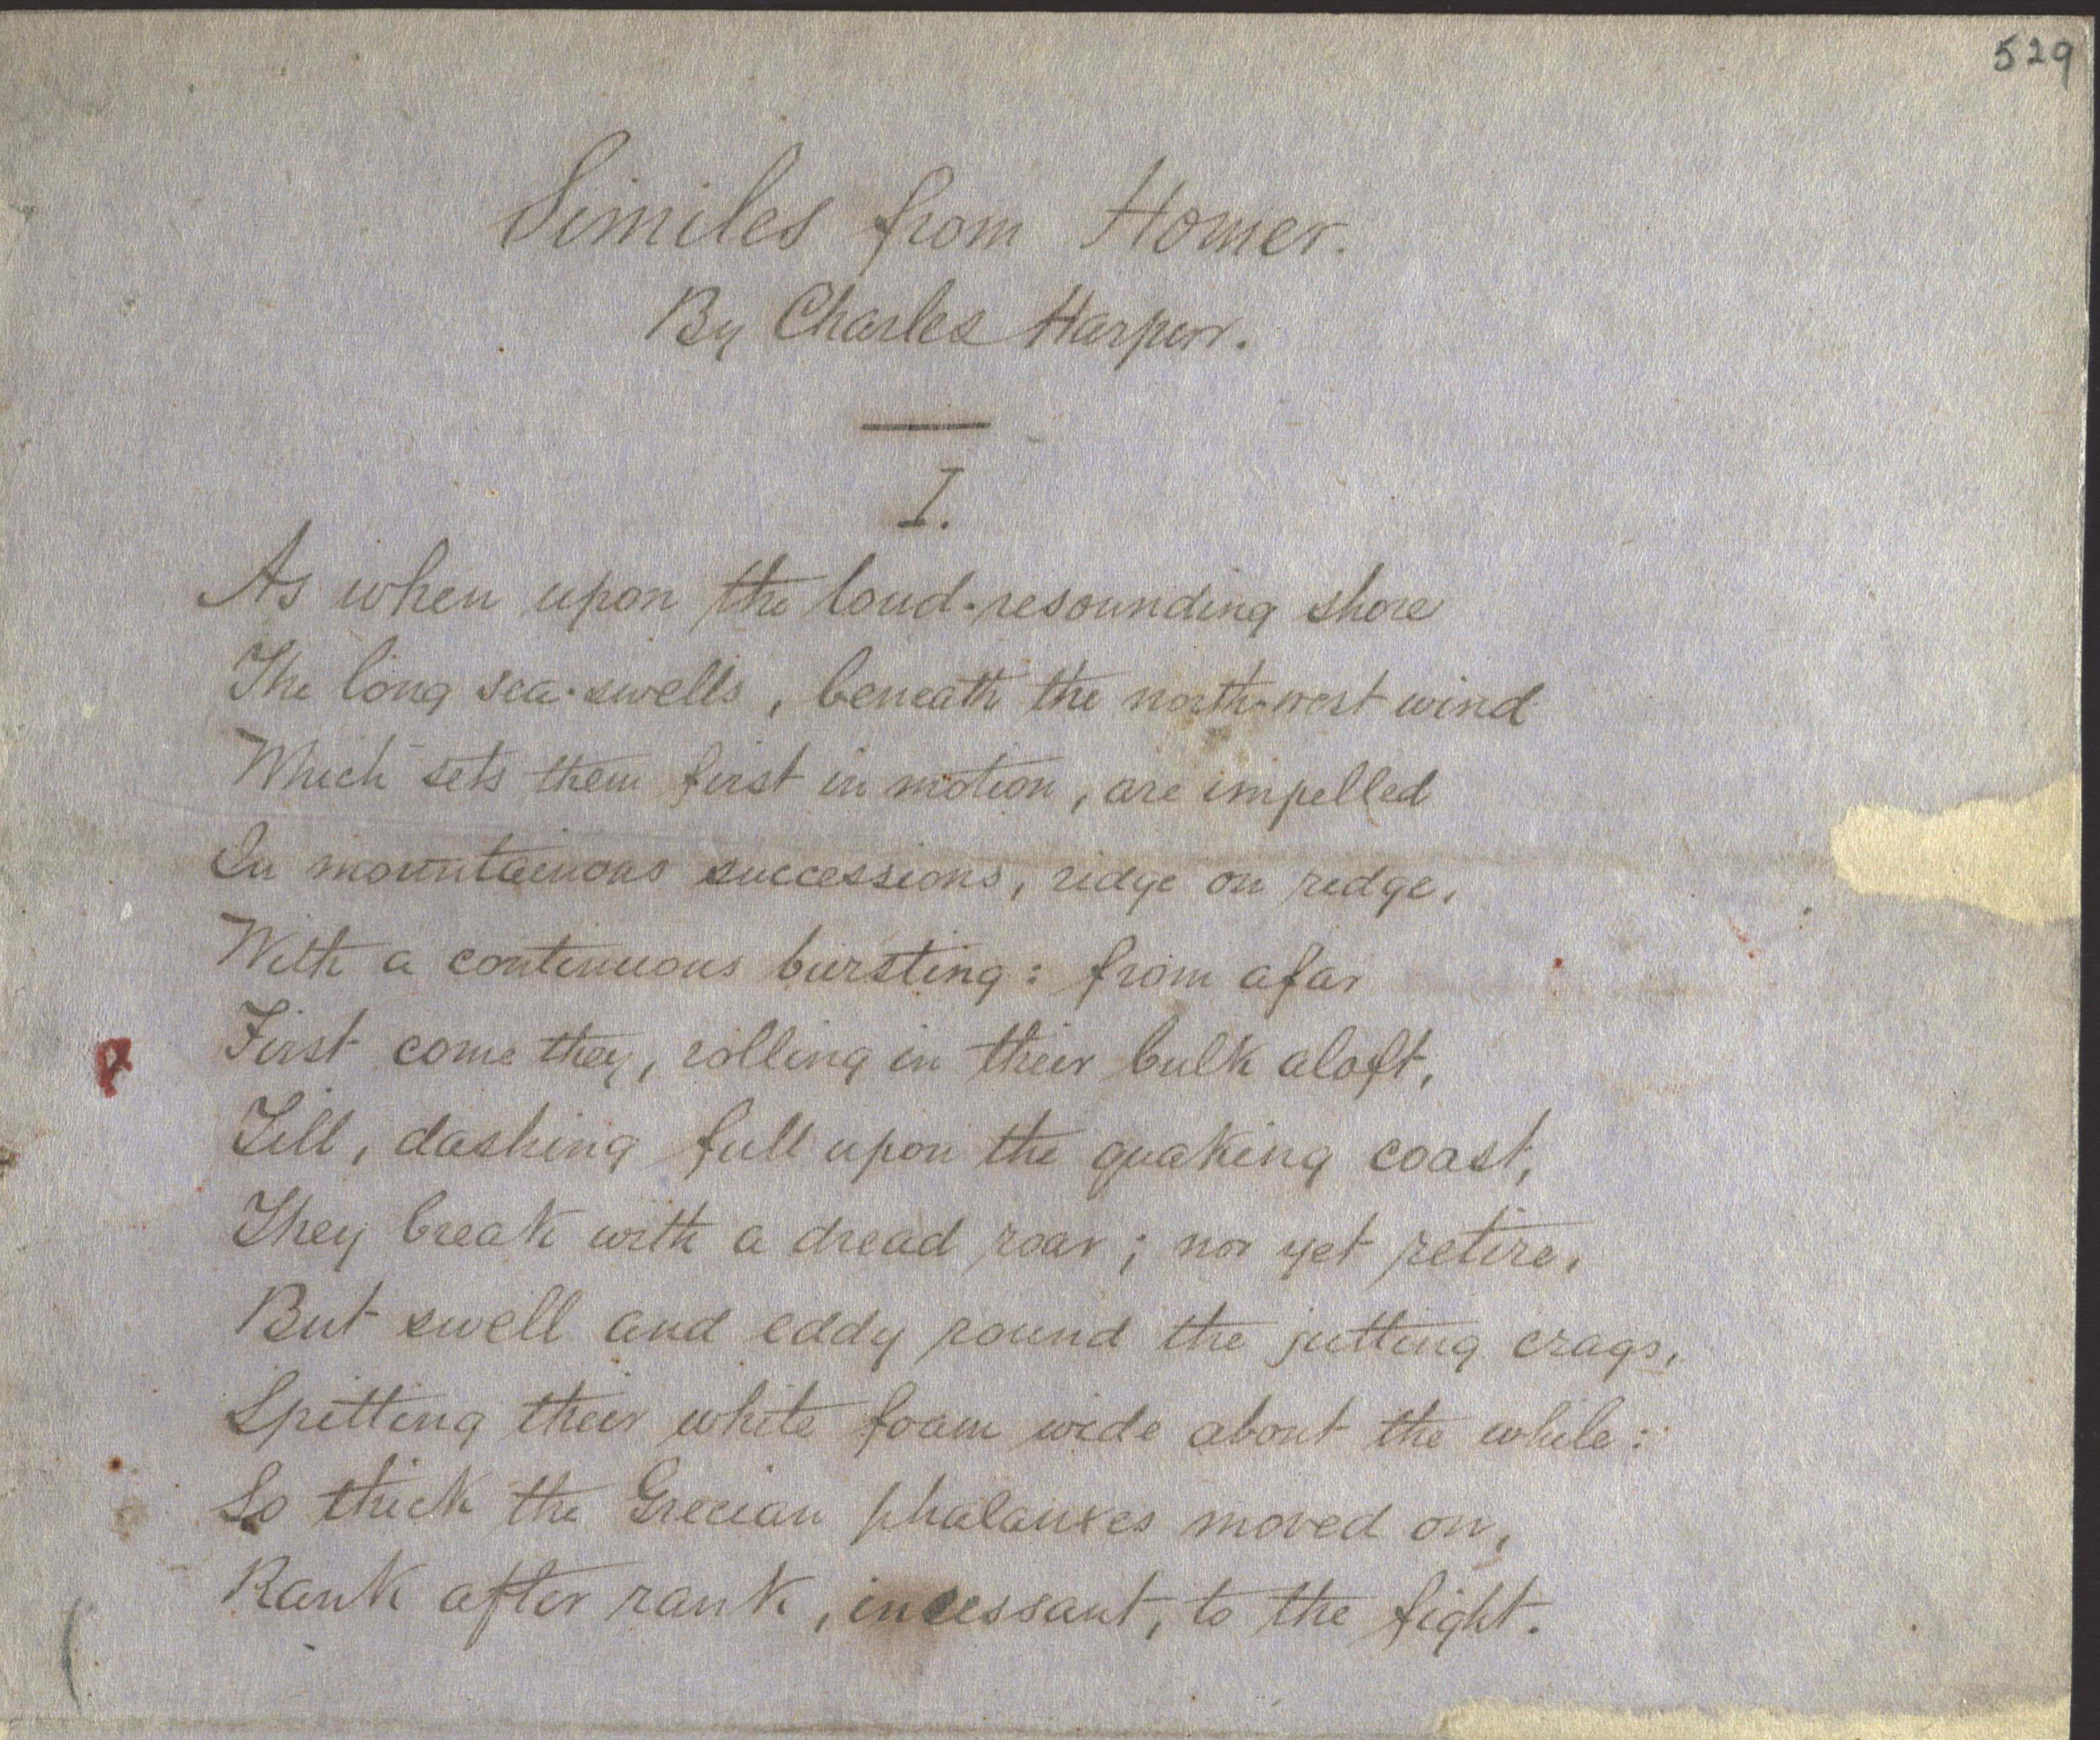 529
Similes from Homer.
By Charles Harpur.
I.
As when upon the loud-resounding shore
The long sea-swells, beneath the north-west wind
Which sets them first in motion, are impelled
In mountainous successions, ridge on ridge,
With a continuous bursting: from afar
First come they, rolling in their bulk aloft,
Till, dashing full upon the quaking coast,
They break with a dread roar; nor yet retire,
But swell and eddy round the jutting crags,
Spitting their white foam wide about the while:
So thick the Grecian phalanxes moved on,
Rank after rank, incessant, to the fight.